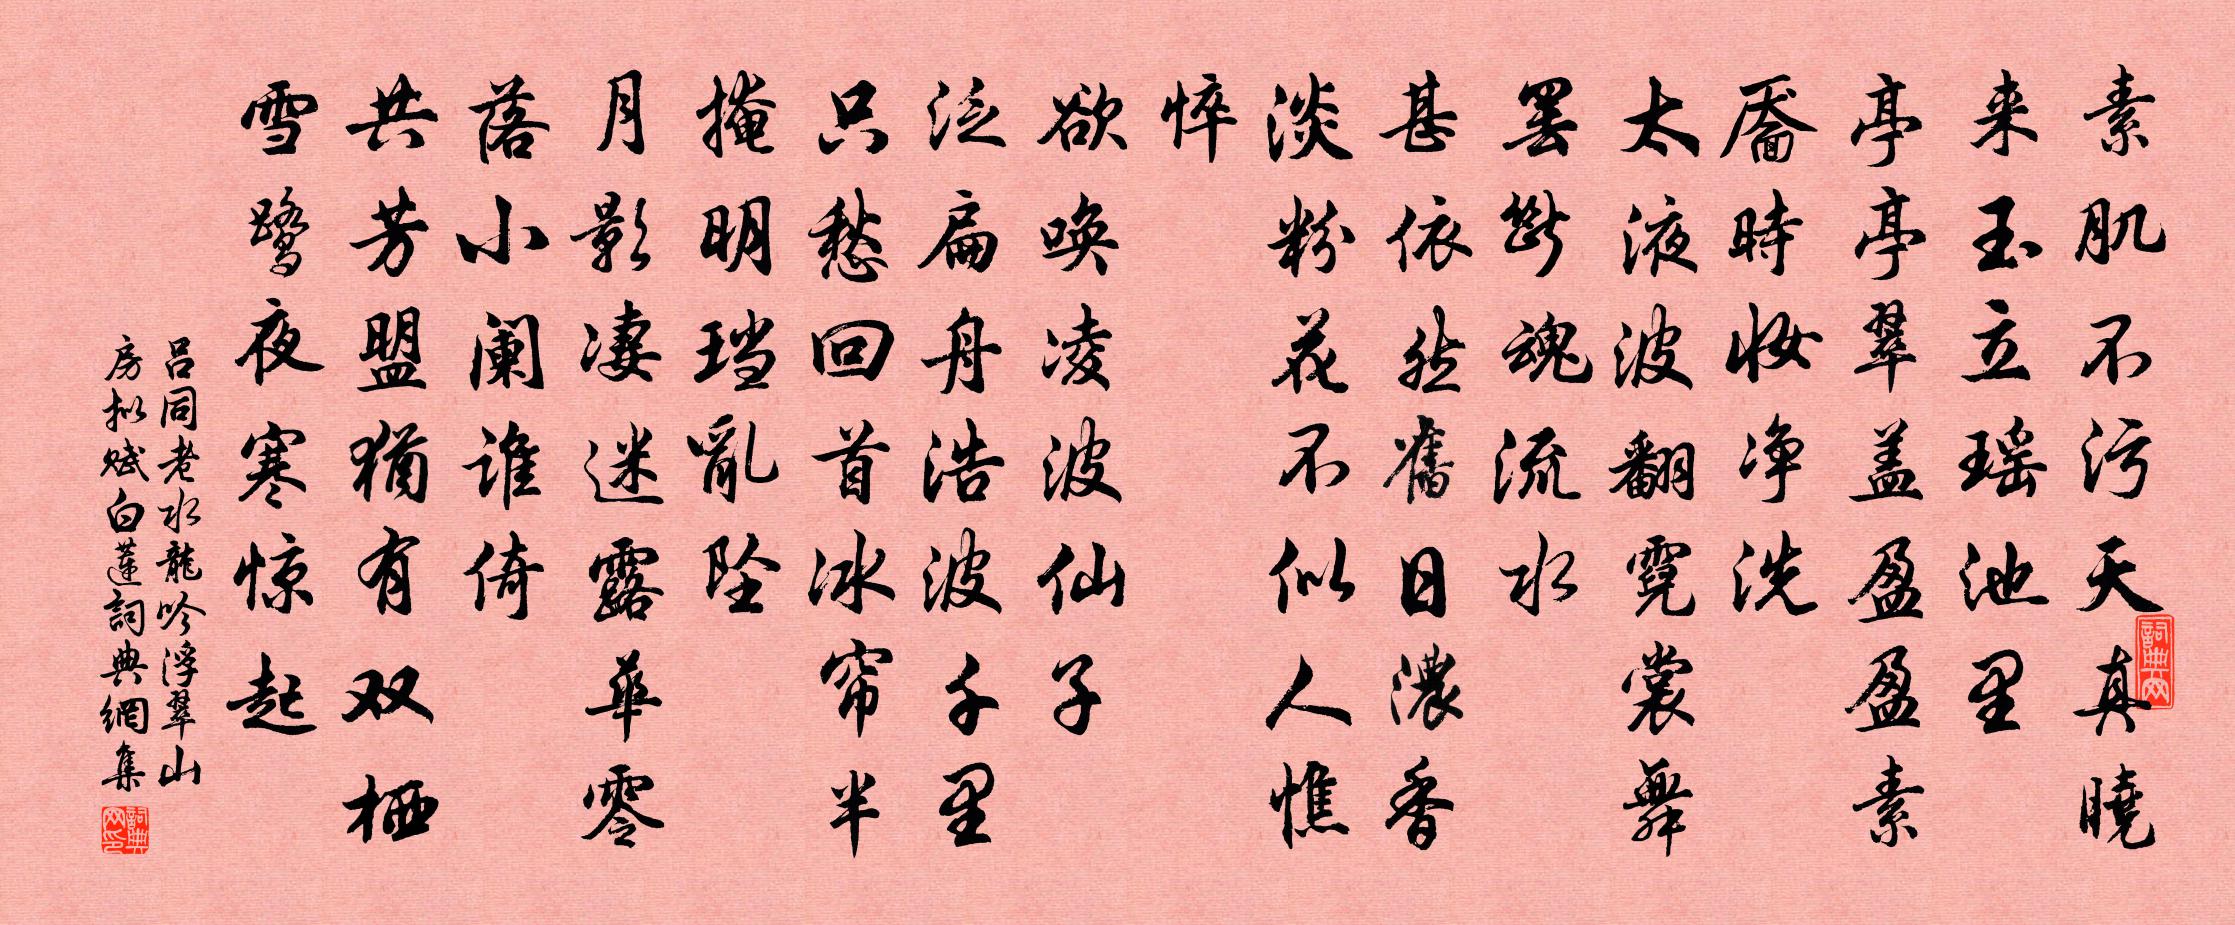 素肌不污天真曉
来玉立瑶池里
亭亭翠盖盈盈素
靥時妆净洗
太液波翻霓裳舞
罢斷魂流水
甚依然舊日濃香
淡粉花不似人憔
悴
欲唤凌波仙子
泛扁舟浩波千里
只愁回首冰帘半
掩明珰亂坠
月影凄迷露華零
落小阑谁倚
共芳盟猶有双栖
雪鹭夜寒惊起
呂同老水龍吟浮翠山
房拟赋白蓮詞典網集
詞典网
詞典网印